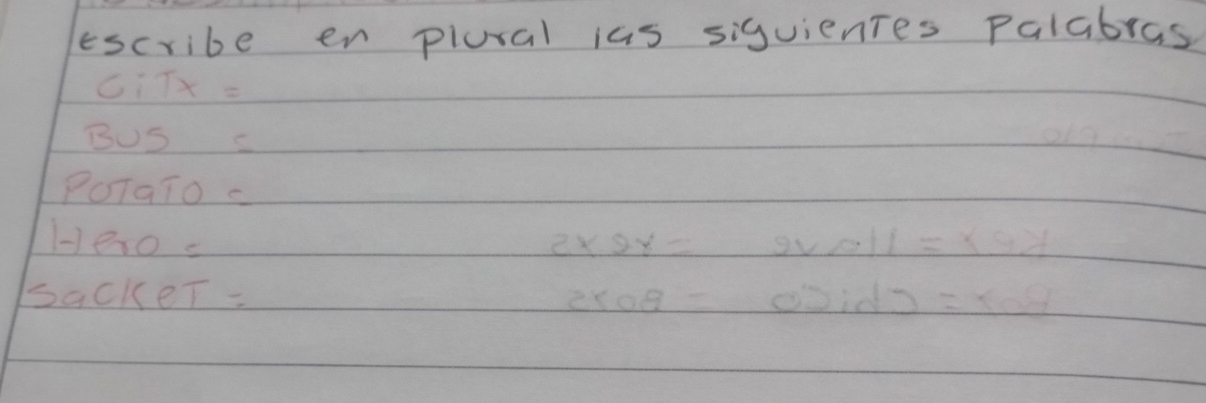 escribe en plural las siguientes Palabras
CiTx =
BUS =
POTaTO =
Hero =
SacKeT =